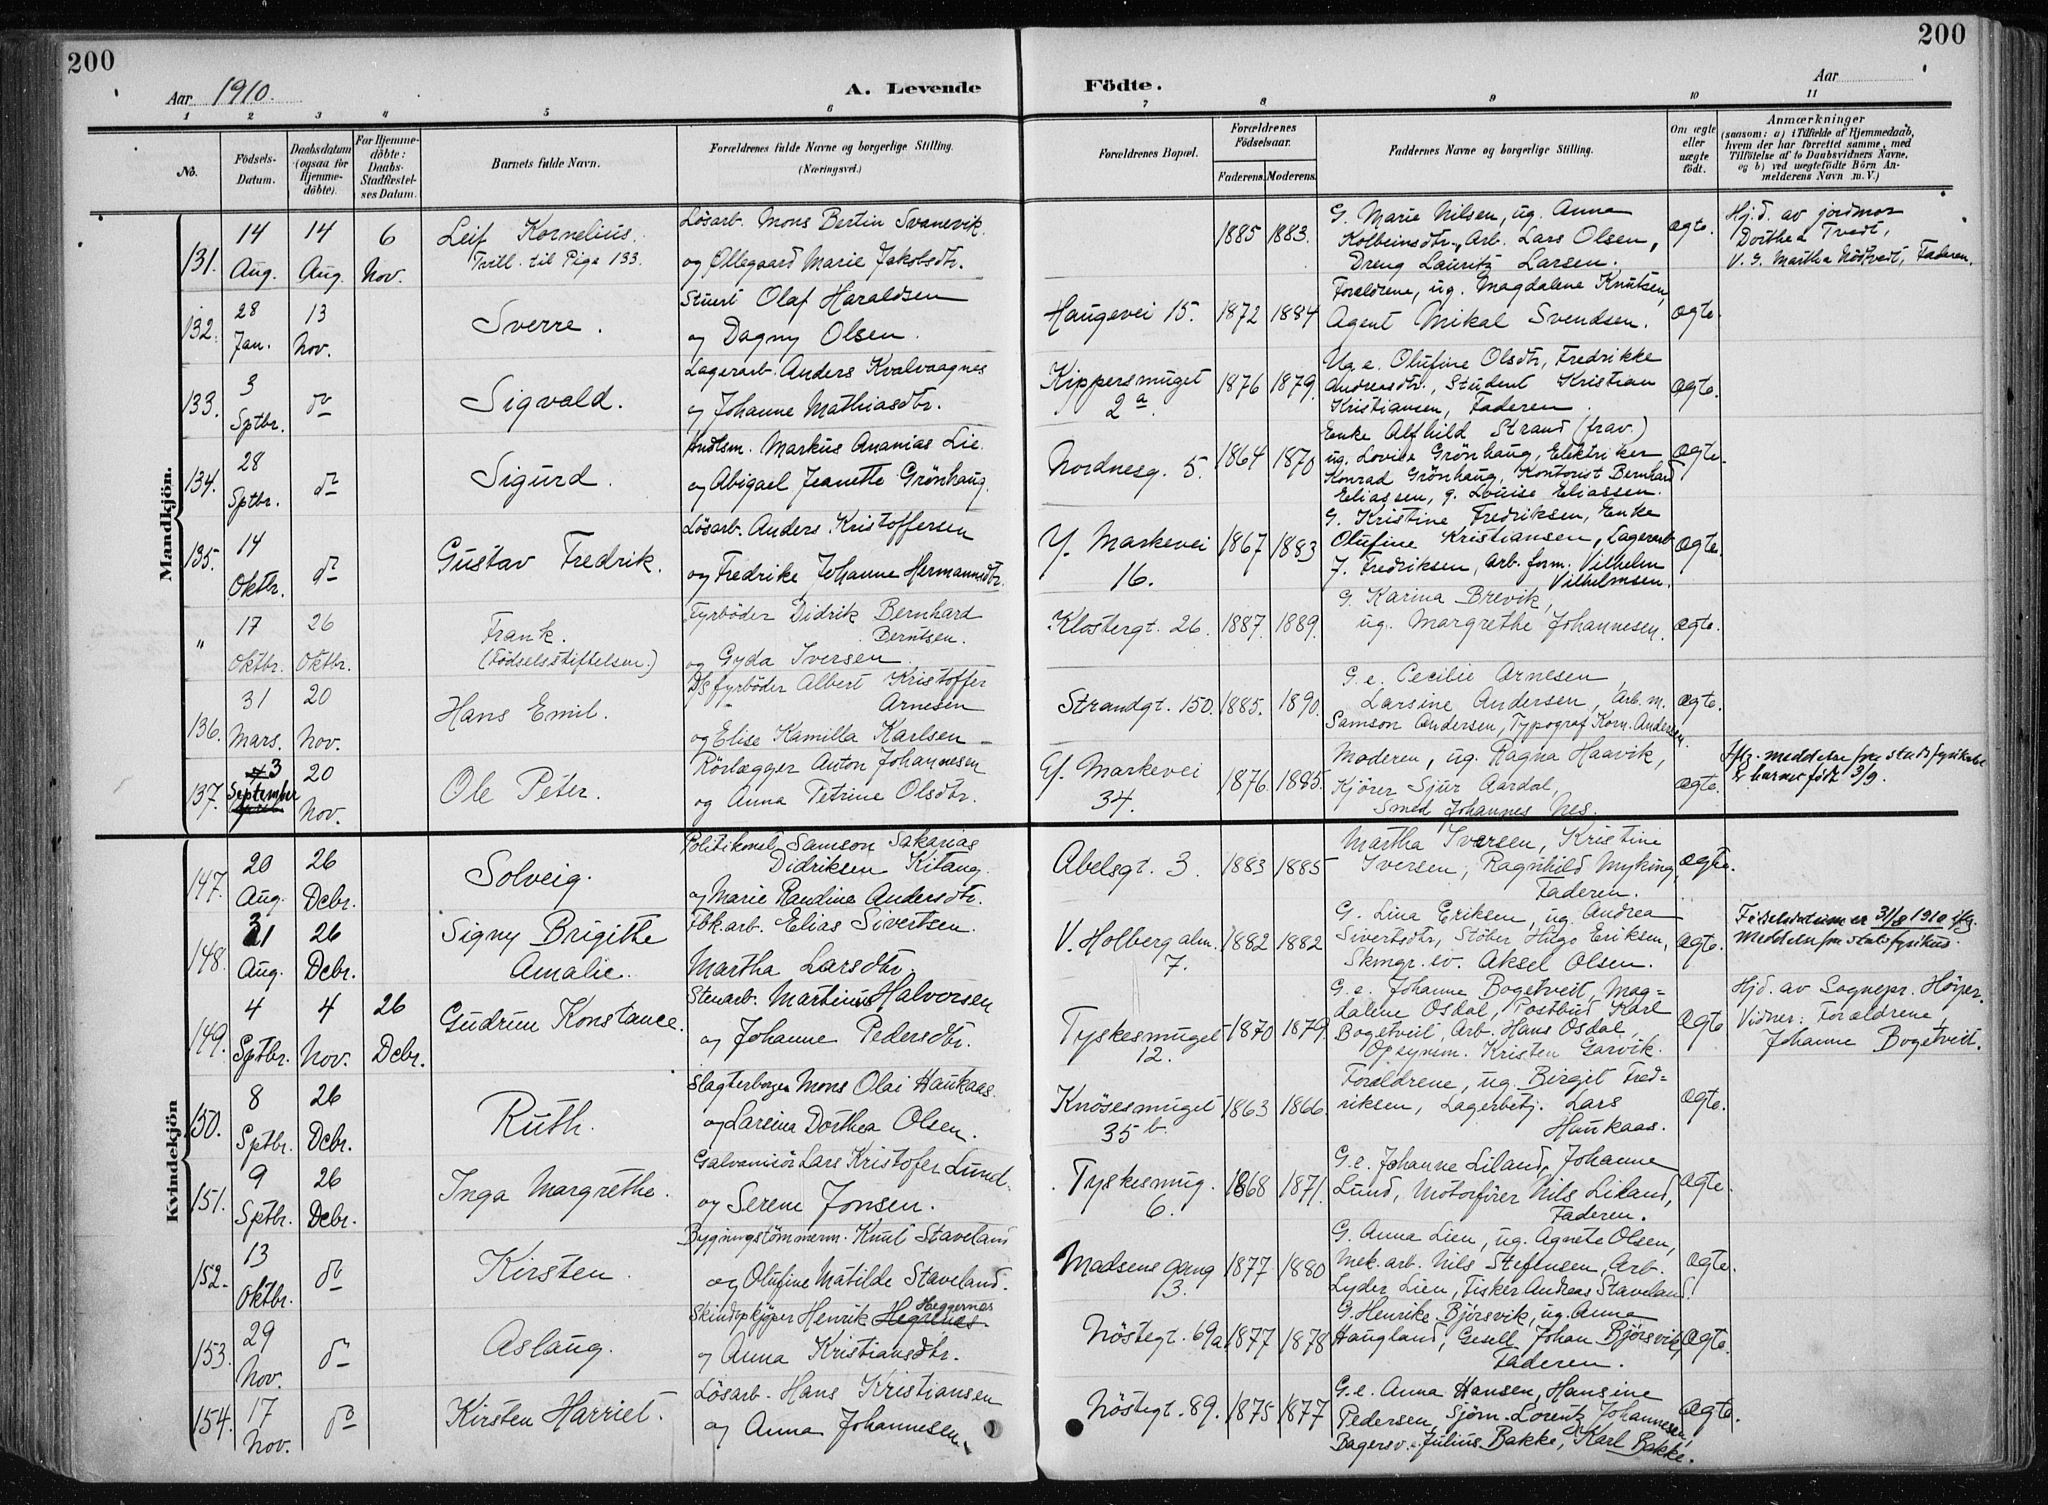 200
200
Aar 1910.
A. Levende
Födte.
Aar
1 2 3 4 5 6 7 8 9 10 11
No.
Födsels-
Datum.
Daabsdatum
(ogsaa for
Hjemme-
döbte).
For Hjemme-
döbte:
Daabs-
Stadfæstel-
ses Datum.
Barnets fulde Navn.
Forældrenes fulde Navne og borgerlige Stilling.
(Næringsvei.)
Forældrenes Bopæl.
Forældrenes
Födselsaar.
Faderens. Moderens.
Faddernes Navne og borgerlige Stilling.
Om ægte
eller
uægte
födt.
Anmærkninger
(saasom: a) i Tilfælde af Hjemmedaab,
hvem der har forrettet samme, med
Tilföielse af to Daabsvidners Navne,
og b) ved uægtefödte Börn An-
melderens Navn m. V.)
Mandkjön.
131. 14 Aug. 14 Aug. 6 Nov.
Leif Kornelius.
Tvill. til Pige 133.
Lösarb. Mons Bertin Svanevik
og Ollegaard Marie Jakobsdtr.
1885 1883.
G. Marie Nilsen, ug. Anna
Kolbeinsdtr., Arb. Lars Olsen,
Dreng Lauritz Larsen.
ægte.
Hj.d. av jordmor
Dorthea Tvedt,
V. G. Martha Nödtvedt, Faderen.
132. 28 Jan. 13 Nov.
Sverre.
Stuert Olaf Haraldsen
og Dagny Olsen.
Haugevei 15. 1872 1884
Forældrene, ug. Magdalene Knutsen,
Agent Mikal Svendsen.
ægte.
133. 3 Sptbr. do
Sigvald.
Lagerarb. Anders Kvalvaagnes
og Johanne Mathiasdtr.
Kippersmuget
2a.
1876 1879.
Ug. e. Olufine Olsdtr, Fredrikke
Andreasdtr., Student Kristian
Kristiansen, Faderen.
ægte.
134. 28 Sptbr. do
Sigurd.
Hndlsm. Markus Ananias Lie
og Abigael Jeanette Grönhaug.
Nordnesg. 5. 1864 1870
Enke Alfhild Strand (frav.)
ug. Lovise Grönhaug, Elektriker
Konrad Grönhaug, Kontorist Bernhard
Eliassen, g. Louise Eliassen.
ægte.
135. 14 Oktbr. do
Gustav Fredrik.
Lösarb. Anders Kristoffersen
og Fredrike Johanne Hermannsdtr.
Y. Markevei
16.
1867 1883
G. Kristine Fredriksen, Enke
Olufine Kristiansen, Lagerarb
J. Fredriksen, Arb. form. Vilhelm
Vilhelmsen.
ægte.
" 17 Oktbr. 26 Oktbr.
Frank.
(Födselsstiftelsen.)
Fyrböder Didrik Bernhard
Berntsen.
og Gyda Iversen.
Klostergt. 26. 1887. 1889.
G. Karina Brevik,
ug. Margrethe Johannesen.
ægte.
136. 31 Mars. 20 Nov.
Hans Emil.
D/s fyrböder Albert Kristoffer
Arnesen
og Elise Kamilla Karlsen
Strandgt. 150. 1885. 1890.
G. e. Cecilie Arnesen
Larsine Andersen, Arb. m.
Samson Andersen, Typograf Korn. Andersen.
ægte.
137. 3 September 20 Nov.
Ole Peter.
Rörlægger Anton Johannesen
og Anna Petrine Olsdtr.
Y. Markevei
34.
1876. 1885.
Moderen, ug. Ragna Haavik,
Kjörer Sjur Aardal,
Smed Johannes Nes.
ægte.
iflg. meddelse fra stadsfysikatet
er barnet födt 3/9.
Kvindekjön
147. 20 Aug. 26 Dcbr.
Solveig.
Politikonst. Samson Sakarias
Didriksen Kitang.
og Marie Randine Andersdtr.
Abelsgt. 3. 1883 1885
Martha Iversen, Kristine
Iversen, Ragnhild Myking,
Faderen.
ægte.
148. 31 Aug. 26 Dcbr.
Signy Brigitte
Amalie.
Fbk. arb. Elias Sivertsen.
Martha Larsdtr
V. Holberg alm.
7.
1882 1882
G. Lina Eriksen, ug. Andrea
Sivertsdtr, Stöber Hugo Eriksen,
Skmgr. sv. Aksel Olsen.
ægte.
Födselsdatum er 31/8 1910 iflg.
Meddelse fra stadsfysikus.
149. 4 Sptbr. 4 Nov. 26 Dcbr.
Gudrun Konstance.
Stenarb. Martinus Halvorsen
og Johanne Pedersdtr.
Tyskesmuget
12.
1870 1879.
G. e. Johanne Bogetveit, Mag=
dalene Osdal, Postbud Karl
Bogetveit, Arb. Hans Osdal,
Opsynsm. Kristen Garvik.
ægte
Hjd. av Sognepr. Höyer.
Vidner: Forældrene,
Johanne Bogetveit.
150. 8 Sptbr. 26 Dcbr.
Ruth.
Slagterborger Mons Olai Haukaas.
og Larsina Dorthea Olsen.
Knösesmuget
35 b.
1863 1866.
Forældrene, ug. Birgit Fred=
riksen, Lagerbetj. Lars
Haukaas.
ægte.
151. 9 Sptbr. 26 Dcbr.
Inga Margrethe.
Galvanisör Lars Kristofer Lund
og Serene Jonsen.
Tyskesmug.
6.
1868 1871.
G. e. Johanne Liland, Johanne
Lund, Motorförer Nils Liland,
Faderen.
ægte.
152. 13 Oktbr. do
Kirsten.
Bygningstömmerm. Knut Staveland
og Olufine Matilde Staveland.
Madsens gang
13.
1877 1880
G. Anna Lien, ug. Agnete Olsen,
Mek. arb. Nils Stefensen, Arb.
Lyder Lien, Fisker Andreas Staveland.
ægte.
153. 29 Nov. do
Aslaug.
Skindopkjöper Henrik Hegrenes Heggernes
og Anna Kristiansdtr.
Nöstegt. 69a 1877 1878
G. Henrike Björsvik, ug. Anna
Haugland, Gesell Johan Björsvik,
Faderen.
ægte.
154. 17 Nov. do
Kirsten Harriet.
Lösarb. Hans Kristiansen
og Anna Johannesen.
Nöstegt. 89. 1875 1877
G. e. Anna Hansen, Hansine
Pedersen, Sjöm. Lorentz Johannesen,
Bagersv. Julius Bakke, Karl Bakke.
ægte.